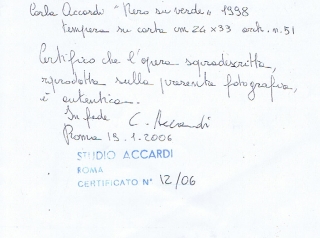 Carla Accardi "Nero su verde" 1998
tempera su carta cm 24 x 33 arch. n. 51
Certifico che l'opera sopradiscritta,
riprodotta sulla presente fotografia,
è autentica.
In fede C. Accardi
Roma 19.1.2006
STUDIO ACCARDI
ROMA
CERTIFICATO N° 12/06